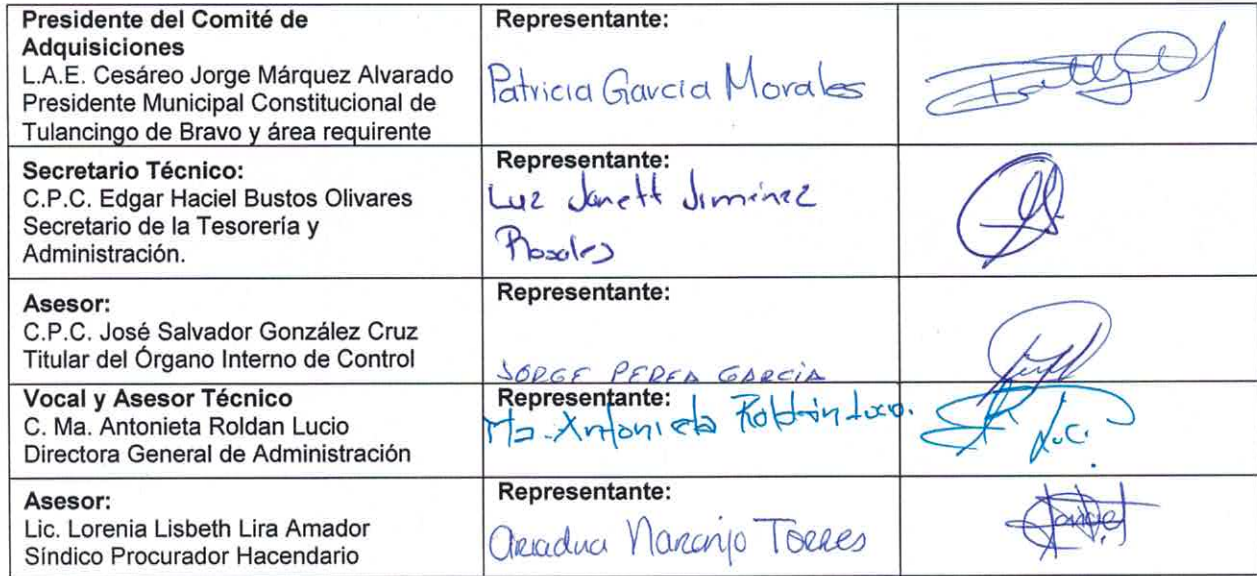 Presidente del Comité de
Adquisiciones
L.A.E. Cesáreo Jorge Márquez Alvarado
Presidente Municipal Constitucional de
Tulancingo de Bravo y área requirente
Representante:
Patricia García Morales
Secretario Técnico:
C.P.C. Edgar Haciel Bustos Olivares
Secretario de la Tesorería y
Administración.
Representante:
Luz Janett Jiménez
Rosales
Asesor:
C.P.C. José Salvador González Cruz
Titular del Órgano Interno de Control
Representante:
JORGE PEREA GARCÍA
Vocal y Asesor Técnico
C. Ma. Antonieta Roldan Lucio
Directora General de Administración
Representante:
Ma. Antonieta Roldán Lucio.
Asesor:
Lic. Lorenia Lisbeth Lira Amador
Síndico Procurador Hacendario
Representante:
Ariadna Naranjo Torres